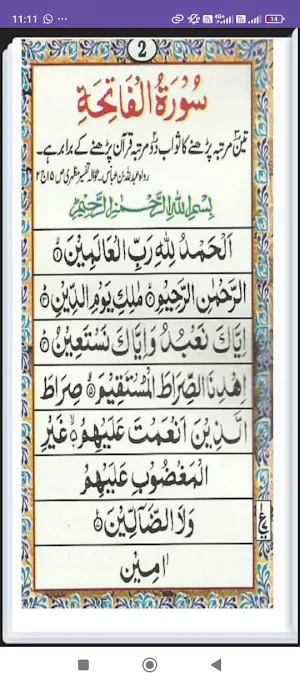 11:11
14
2
سُوْرَةُ الْفَاتِحَةِ
تین مرتبہ پڑھنے کا ثواب دو مرتبہ قرآن پڑھنے کے برابر ہے۔
رواہ عبداللہ بن عباس۔ بحوالہ تفسیر مظہری ص ۱۵ ج ۲
بِسْمِ اللهِ الرَّحْمٰنِ الرَّحِيْمِ
اَلْحَمْدُ لِلّٰهِ رَبِّ الْعَالَمِيْنَ ۙ
الرَّحْمٰنِ الرَّحِيْمِ ۙ مٰلِكِ يَوْمِ الدِّيْنِ ۙ
اِيَّاكَ نَعْبُدُ وَاِيَّاكَ نَسْتَعِيْنُ ۙ
اِهْدِنَا الصِّرَاطَ الْمُسْتَقِيْمَ ۙ صِرَاطَ
الَّذِيْنَ اَنْعَمْتَ عَلَيْهِمْ ۙ غَيْرِ
الْمَغْضُوْبِ عَلَيْهِمْ
وَلَا الضَّآلِّيْنَ ۧ
اٰمِيْن